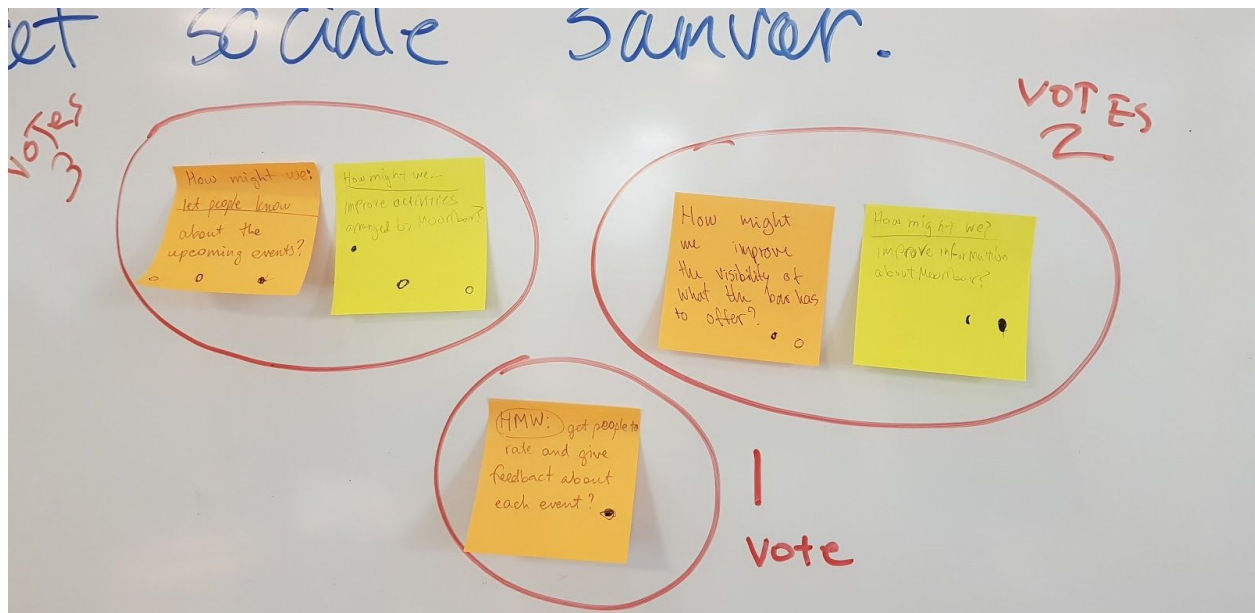 et sociale samvær.
VOTES
3
How might we:
let people know
about the
upcoming events?
How might we...
improve activities
arranged by Moonbar?
VOTES
2
How might
we improve
the visibility of
what the bar has
to offer?
How might we?
improve information
about Moonbar?
HMW: get people to
rate and give
feedback about
each event?
1
vote